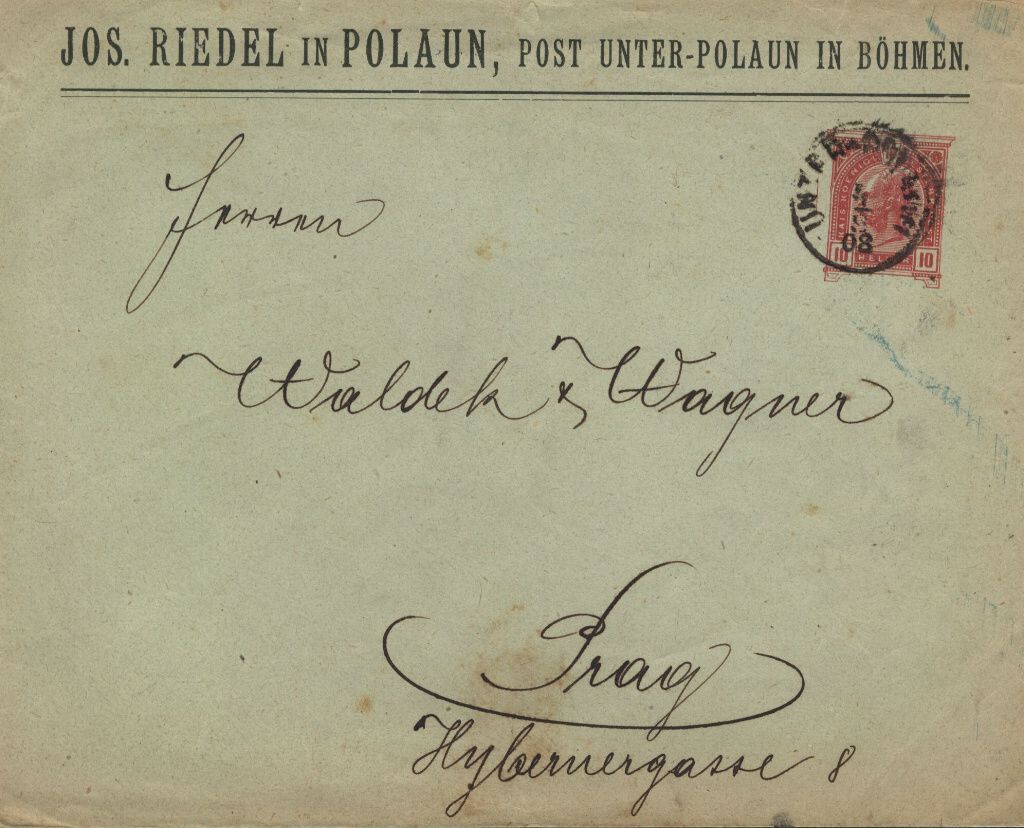 JOS. RIEDEL IN POLAUN, POST UNTER-POLAUN IN BÖHMEN.
UNTER-POLAUN
08
KAIS. KOENIGL.
10 HELLER 10
Herren
Waldek & Wagner
Prag
Hybernergasse 8